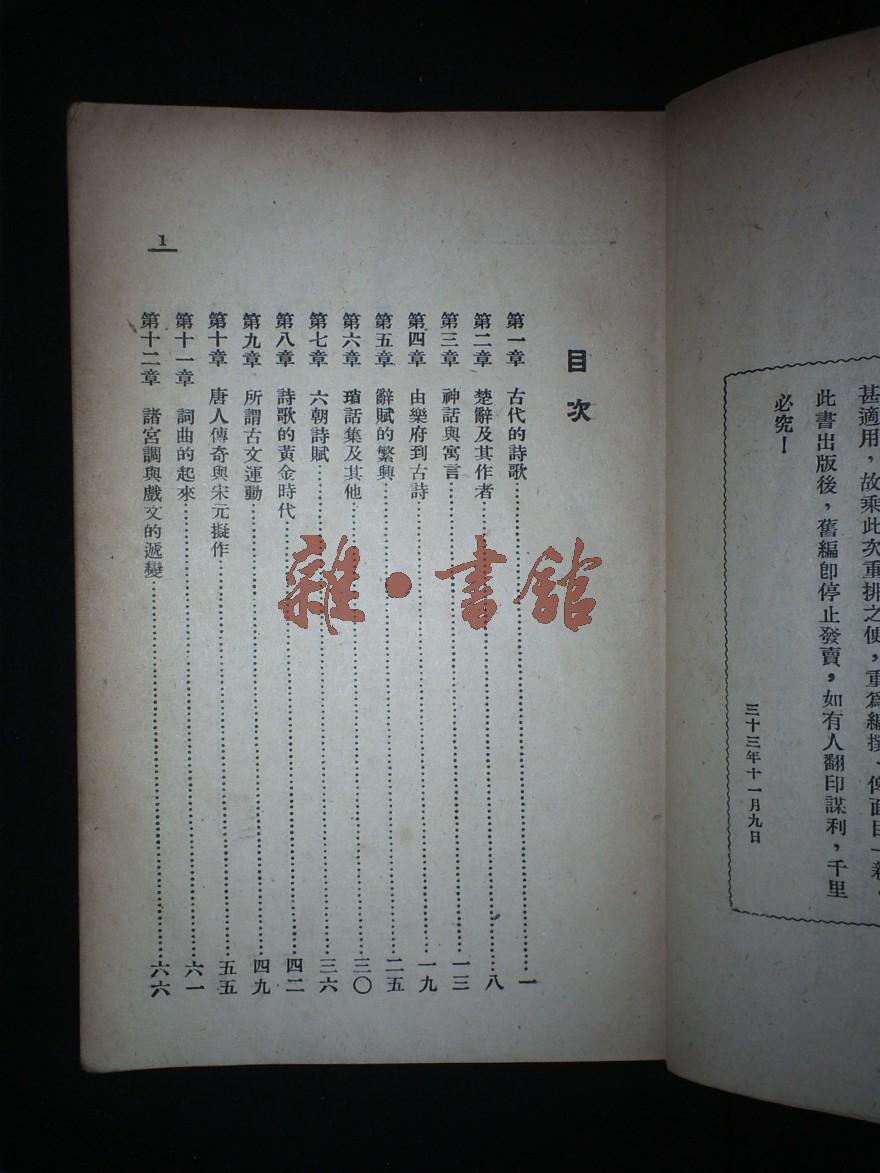 甚適用，故乘此次重排之便，重爲編撰、俾面目一新，
此書出版後，舊編卽停止發賣，如有人翻印謀利，千里
必究！
三十三年十一月九日
目次
第一章 古代的詩歌……一
第二章 楚辭及其作者……八
第三章 神話與寓言……一三
第四章 由樂府到古詩……一九
第五章 辭賦的繁興……二五
第六章 瑣話集及其他……三〇
第七章 六朝詩賦……三六
第八章 詩歌的黃金時代……四二
第九章 所謂古文運動……四九
第十章 唐人傳奇與宋元擬作……五五
第十一章 詞曲的起來……六一
第十二章 諸宮調與戲文的遞變……六六
1
雜·書館